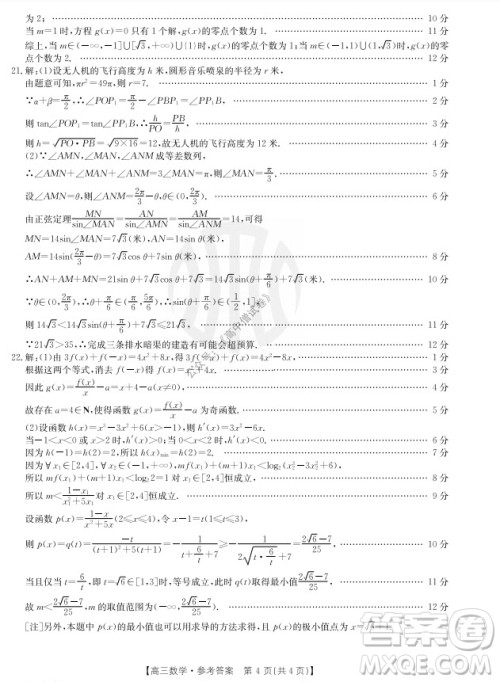 为2; 10分
当m=1时,方程g(x)=0只有1个实根,此时g(x)的零点个数为1. 11分
综上,当m∈(-∞,-1]∪[√3,+∞)∪{1}时,g(x)的零点个数为1;当m∈(-1,1)∪(1,√3)时,g(x)的零点个数为2. 12分
21.解:(1)设无人机的飞行高度为h米,圆形音乐喷泉的半径为r米,
由题意可知,πr²=49π,则r=7. 1分
∵α+β=π/2,∴∠POP₁=π/2-∠PBP₁=∠PP₁B, 2分
则tan∠POP₁=tan∠PP₁B,∴h/PO=PB/h, 3分
则h=√(PO·PB)=√(9×16)=12,故无人机的飞行高度为12米. 4分
(2)∵∠AMN,∠MAN,∠ANM成等差数列,
∴∠AMN+∠MAN+∠ANM=3∠MAN=π,则∠MAN=π/3. 5分
设∠AMN=θ,则∠ANM=2π/3-θ,θ∈(0,2π/3). 6分
由正弦定理MN/sin∠MAN=AN/sin∠AMN=AM/sin∠ANM=14,可得
MN=14sin∠MAN=7√3(米),AN=14sin θ(米),
AM=14sin(2π/3-θ)=7√3cos θ+7sin θ(米), 8分
∴AM+AN+MN=21sin θ+7√3cos θ+7√3=14√3sin(θ+π/6)+7√3(米). 10分
∵θ∈(0,2π/3),∴θ+π/6∈(π/6,5π/6),∴sin(θ+π/6)∈(1/2,1],
则14√3<14√3sin(θ+π/6)+7√3≤21√3. 11分
∵21√3>35,∴完成三条排水暗渠的建造有可能会超预算. 12分
22.解:(1)由3f(x)+f(-x)=4x²+8x,得3f(-x)+f(x)=4x²-8x. 1分
根据这两个等式,消去f(-x)得f(x)=x²+4x. 2分
因此g(x)=f(x)/x-a=x+4-a(x≠0), 3分
故存在a=4∈N,使得函数g(x)=f(x)/x-a为奇函数. 5分
(2)设函数h(x)=x³-3x²+6(x>-1),则h′(x)=3x²-6x.
当-1<x<0或x>2时,h′(x)>0;当0<x<2时,h′(x)<0. 6分
因为h(-1)=h(2)=2,所以h(x)min=h(2)=2. 7分
因为∀x₁∈[2,4],∀x₂∈(-1,+∞),mf(x₁)+(m+1)x₁<log₂(x₂³-3x₂²+6),
所以∀x₁∈[2,4],mf(x₁)+(m+1)x₁<log₂2=1对x₁∈[2,4]恒成立, 8分
所以m<(1-x₁)/(x₁²+5x₁)对x₁∈[2,4]恒成立. 9分
设函数p(x)=(1-x)/(x²+5x)(2≤x≤4),令x-1=t(1≤t≤3),
则p(x)=q(t)=-t/((t+1)²+5(t+1))=-1/(t+6/t+7)≥-1/(2√(t·6/t)+7)=(2√6-7)/25, 10分
当且仅当t=6/t,即t=√6∈[1,3]时,等号成立,所以p(x)取得最小值(2√6-7)/25, 11分
故m<(2√6-7)/25,m的取值范围为(-∞,(2√6-7)/25). 12分
[注]另外,本题中p(x)的最小值也可以用求导的方法求得,且当p(x)取得最小值时,x=√6+1.
【高三数学·参考答案 第4页(共4页)】